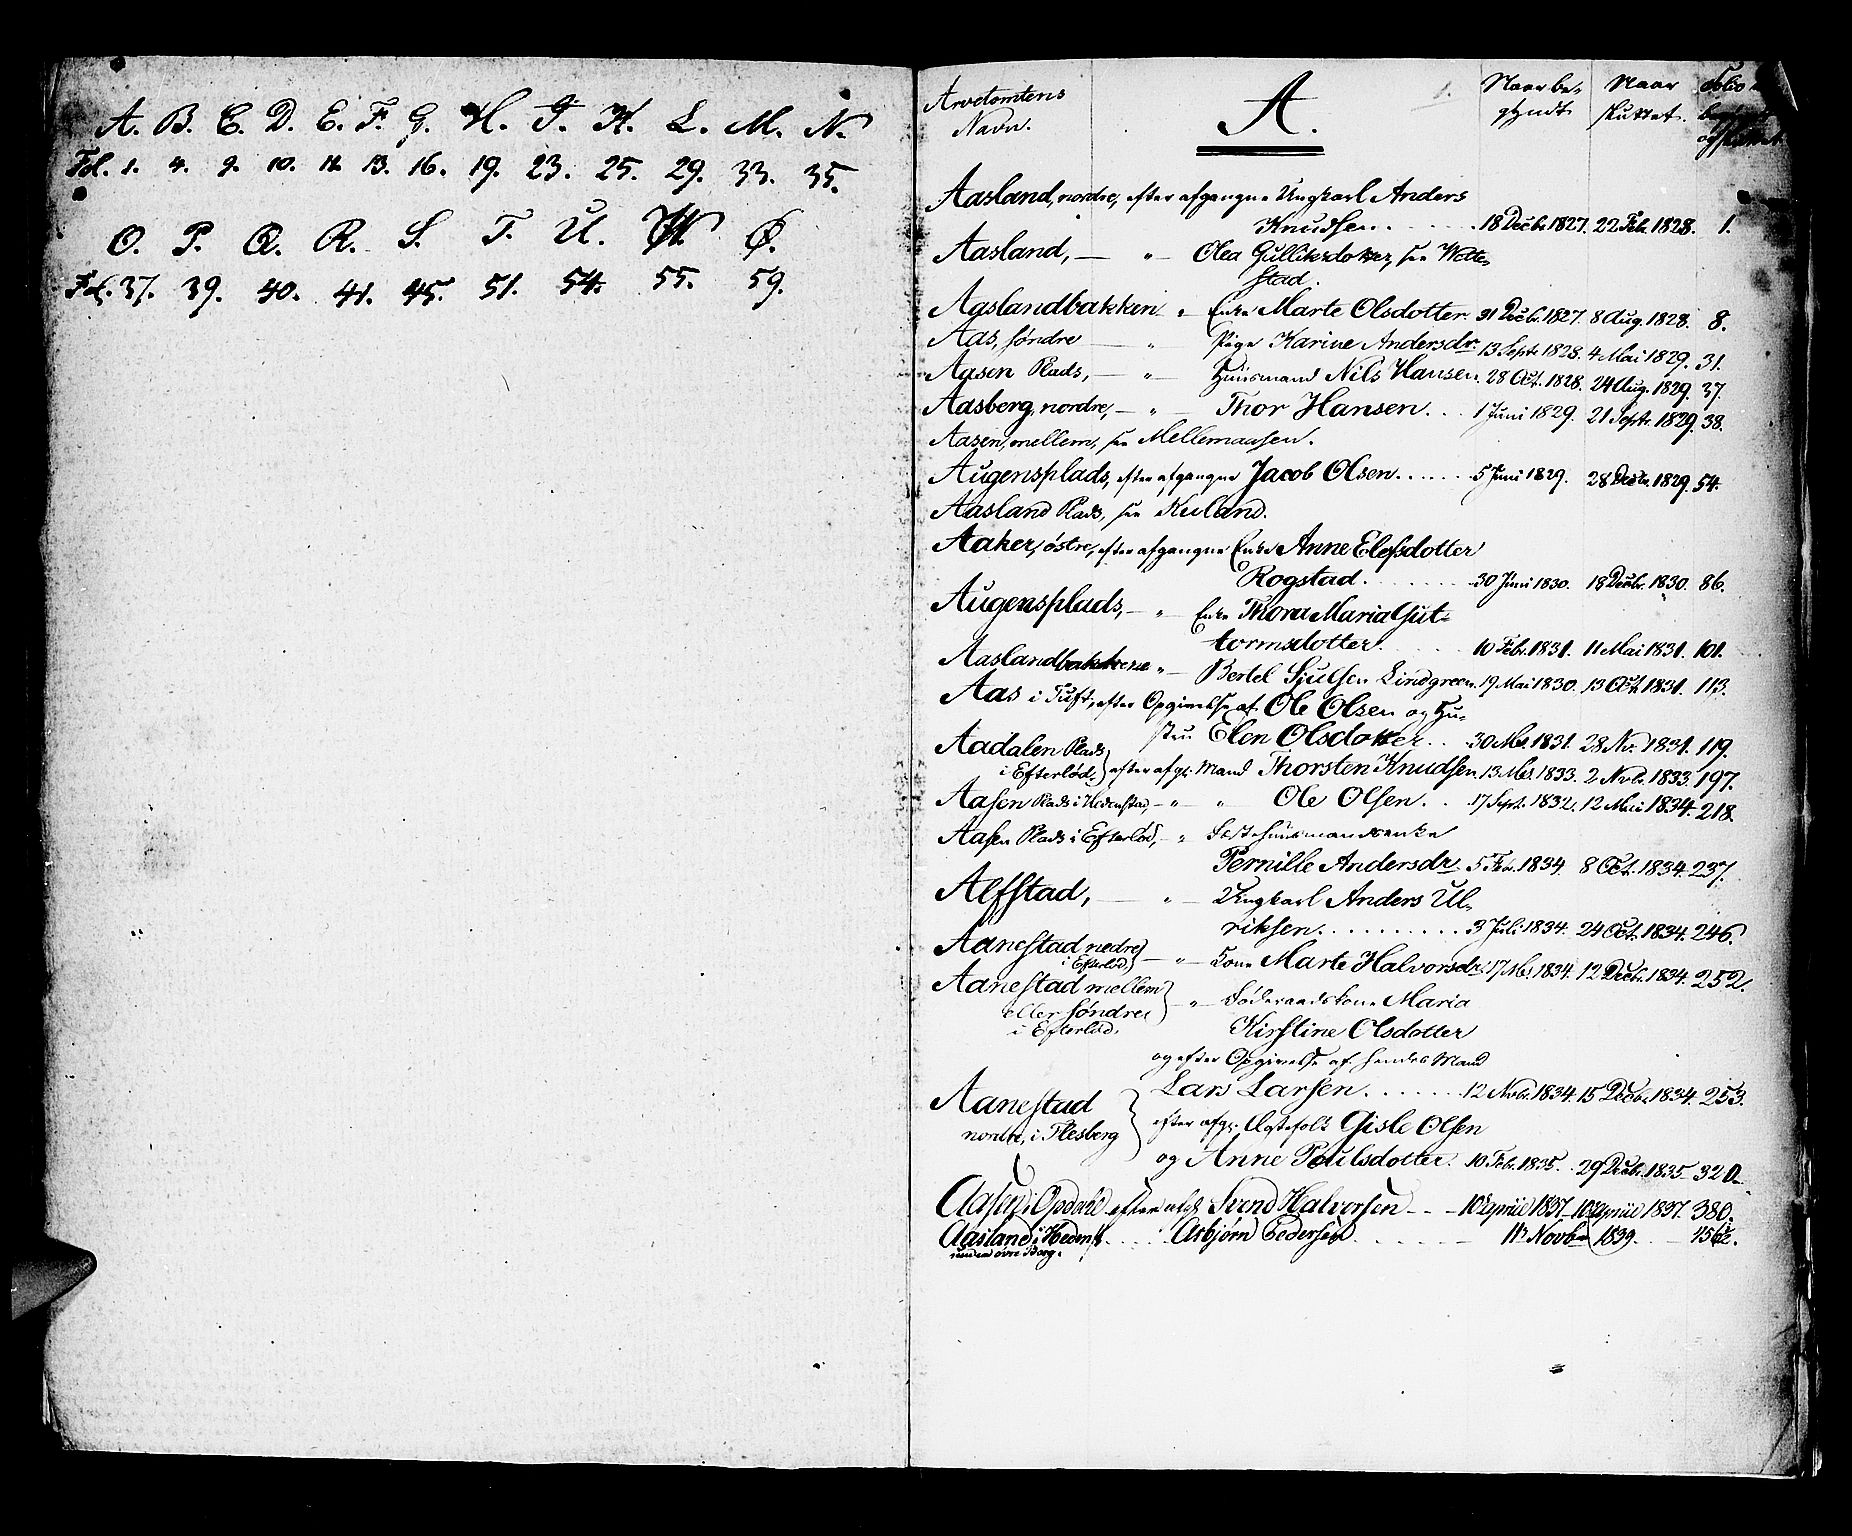 A. B. C. D. E. F. G. H. I. K. L. M. N.
Fol. 1. 4. 9. 10. 12. 13. 16. 19. 23. 25. 29. 33. 35.
O. P. Q. R. S. T. U. W. Ø.
Fol. 37. 39. 40. 41. 45. 51. 54. 55. 59.
Arvetomtens Navn. A. Naar be- gyndt Naar sluttet. Folio
Aasland, nordre, efter afgangne Ungkarl Anders
Knudsen. 18 Decbr 1827. 22 Feb. 1828. 1.
Aasland, — " — Olea Gulliksdotter, see Wette-
stad.
Aaslandbakken " Enke Marte Olsdotter. 31 Decbr. 1827. 8 Aug. 1828. 8.
Aas, søndre — " — Pige Karine Andersdr. 13 Septr 1828. 4 Mai 1829. 31.
Aasen Plads, — " — Huusmand Nils Hansen. 28 Oct. 1828. 24 Aug. 1829. 37.
Aasberg, nordre, — " — Thor Hansen. 1 Juni 1829. 21 Septr. 1829. 38.
Aasen, mellem, see Mellemaasen.
Augensplads, efter afgangne Jacob Olsen. 5 Juni 1829. 28 Decbr. 1829. 54.
Aasland Plads, see Ruland.
Aaker, østre, efter afgangne Enke Anne Elefsdotter
Rogstad. 30 Juni 1830. 18 Decbr. 1830. 86.
Augensplads, — " — Enke Thora Maria Gut-
tormsdotter. 10 Febr. 1831. 11 Mai 1831. 101.
Aaslandbakkene " — Bertel Siulsen Lindgreen. 19 Mai 1830. 13 Oct. 1831. 113.
Aas i Tuft, efter Opgivelse af Ole Olsen og Hu-
stru Elen Olsdotter. 30 Mrs. 1831. 28 Nv. 1831. 119.
Aadalen Plads
i Efterlød, efter afg. Mand Thorsten Knudsen. 13 Mrs. 1833. 2 Novbr. 1833. 197.
Aasen Plads i Hedenstad, — " " Ole Olsen. 17 Septr. 1832. 12 Mai 1834. 218.
Aasen Plads i Efterlød, — " Fæstehuusmandsenke
Pernille Andersdr. 5 Febr. 1834. 8 Oct. 1834. 237.
Alfstad, — " — Ungkarl Anders Ul-
riksen. 3 Juli 1834. 24 Oct. 1834. 246.
Aanestad nedre
i Efterlød — " — Kone Marte Halvorsdr. 17 Mrs. 1834. 12 Decbr. 1834. 252.
Aanestad mellem — " — Føderaadskone Maria
eller søndre, Kirstine Olsdotter
i Efterlød.
og efter Opgivelse af hendes Mand
Lars Larsen. 12 Novbr. 1834. 15 Decbr. 1834. 253.
Aanestad efter afg. Ægtefolk Gisle Olsen
nordre, i Flesberg
og Anne Poulsdotter. 10 Feb. 1835. 29 Decbr. 1835. 320.
Aasen i Opdahl efter Svend Halvorsen — 10 April 1837 10 April 1837. 380.
Aasland i Hedenst. Asbjørn Pedersen 11 Novbr 1839.
under øvre Berg.